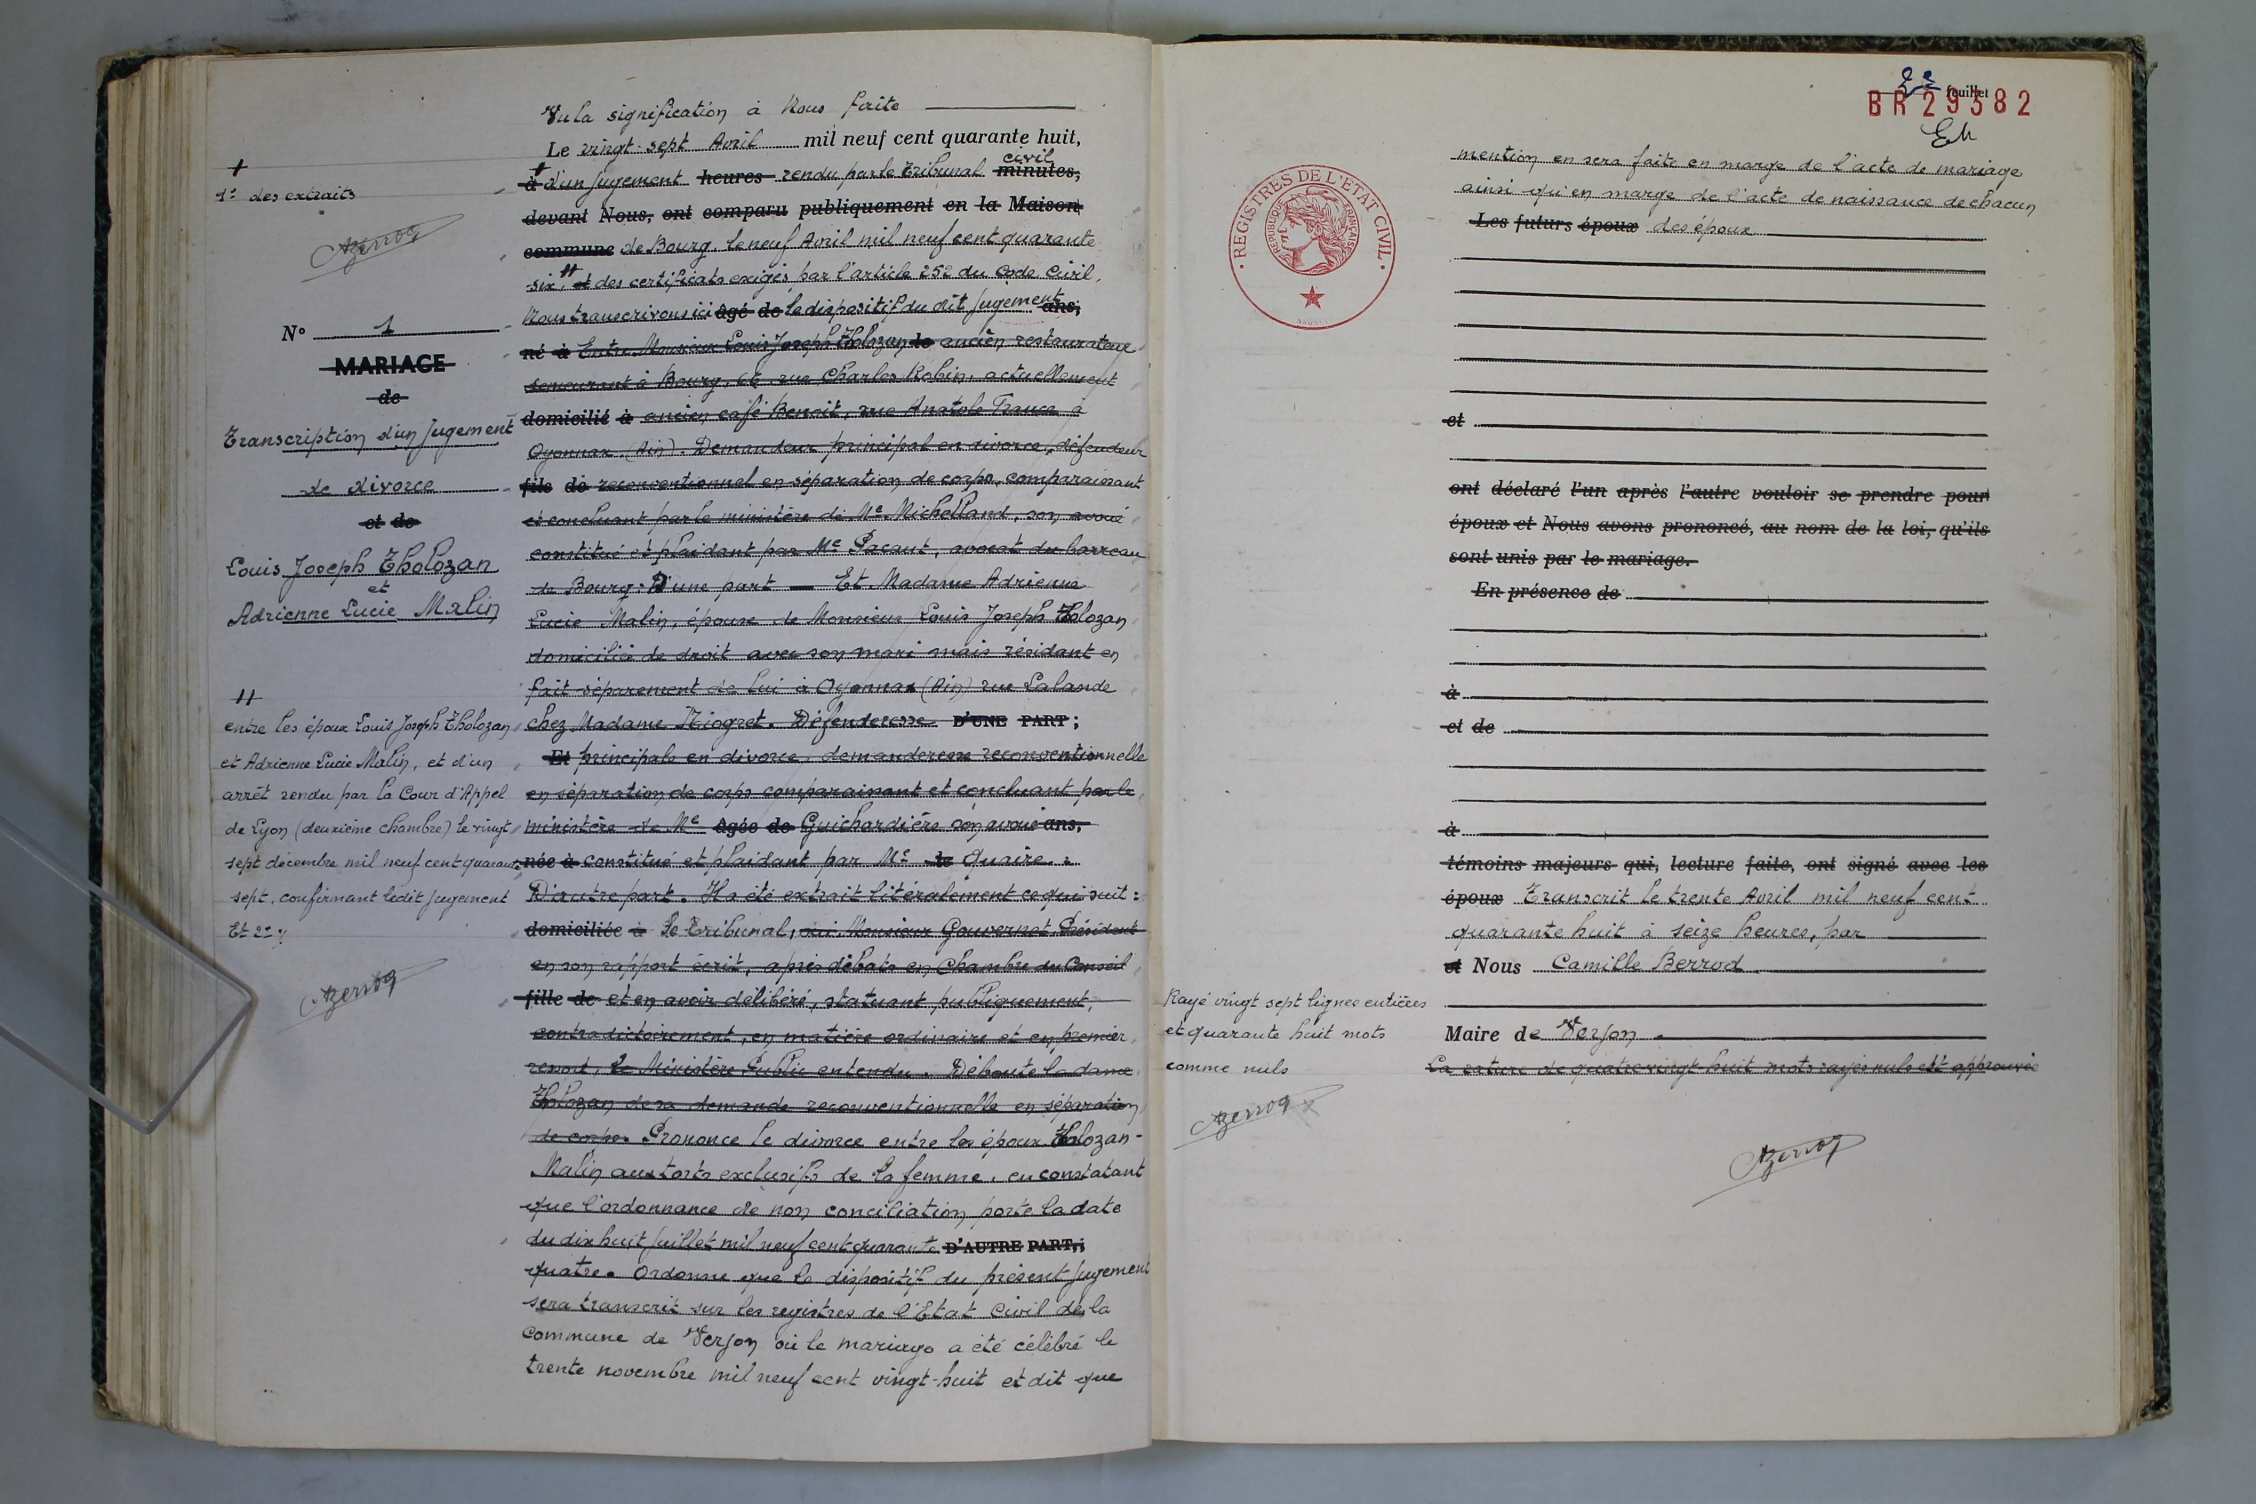 +
1º des extraits
ABerrod
Nº 1
MARIAGE
de
Transcription d'un jugement
de divorce
et de
Louis Joseph Tholozan
et
Adrienne Lucie Malin
++
entre les époux Louis Joseph Tholozan
et Adrienne Lucie Malin, et d'un
arrêt rendu par la Cour d'Appel
de Lyon (deuxième chambre) le vingt
sept décembre mil neuf cent quarante
sept, confirmant ledit jugement
Et 2º
Vu la signification à Nous faite
Le vingt-sept Avril mil neuf cent quarante huit,
civil
à + d'un jugement heures rendu par le Tribunal minutes,
devant Nous, ont comparu publiquement en la Maison
commune de Bourg, le neuf Avril mil neuf cent quarante
six, ++ et des certificats exigés par l'article 252 du Code Civil,
Nous transcrivons ici âgé de le dispositif du dit jugement ans,
né à Entre Monsieur Louis Joseph Tholozan le ancien restaurateur
demeurant à Bourg, 62 rue Charles Robin, actuellement
domicilié à ancien café Benoit, rue Anatole France à
Oyonnax (Ain). Demandeur principal en divorce, défendeur
fils de reconventionnel en séparation de corps, comparaissant
et concluant par le ministère de Me Michelland, son avoué
constitué et plaidant par Me Pacaut, avocat du barreau
de Bourg. D'une part — Et Madame Adrienne
Lucie Malin, épouse de Monsieur Louis Joseph Tholozan
domiciliée de droit avec son mari mais résidant en
fait séparement de lui à Oyonnax (Ain) rue Lalande
chez Madame Niogret. Défenderesse D'UNE PART;
Et principale en divorce, demanderesse reconventionnelle
en séparation de corps comparaissant et concluant par le
ministère de Me âgée de Guichardière son avoué ans,
née à constitué et plaidant par Me le Quaire.
D'autre part. Il a été extrait litéralement ce qui suit:
domiciliée à Le Tribunal, ouï Monsieur Gouvernet Président
en son rapport écrit, après débats en Chambre du Conseil
fille de et en avoir délibéré, statuant publiquement,
contradictoirement, en matière ordinaire et en premier
ressort, le Ministère Public entendu. Déboute la dame
Tholozan de sa demande reconventionnelle en séparation
de corps. Prononce le divorce entre les époux Tholozan-
Malin aux torts exclusifs de la femme, en constatant
que l'ordonnance de non conciliation porte la date
du dix huit juillet mil neuf cent quarante D'AUTRE PART;
quatre. Ordonne que le dispositif du présent jugement
sera transcrit sur les registres de l'Etat Civil de la
Commune de Verjon où le mariage a été célébré le
trente novembre mil neuf cent vingt-huit et dit que
2e feuillet
BR29382
REGISTRES DE L'ETAT CIVIL
REPUBLIQUE FRANÇAISE
mention en sera faite en marge de l'acte de mariage
ainsi qu'en marge de l'acte de naissance de chacun
Les futurs époux des époux
et
ont déclaré l'un après l'autre vouloir se prendre pour
époux et Nous avons prononcé, au nom de la loi, qu'ils
sont unis par le mariage.
En présence de
à
et de
à
témoins majeurs qui, lecture faite, ont signé avec les
époux Transcrit le trente Avril mil neuf cent
quarante huit à seize heures, par
et Nous Camille Berrod
Maire de Verjon.
La rature de quatre vingt-huit mots rayés nuls est approuvée
Rayé vingt sept lignes entières
et quarante huit mots
comme nuls